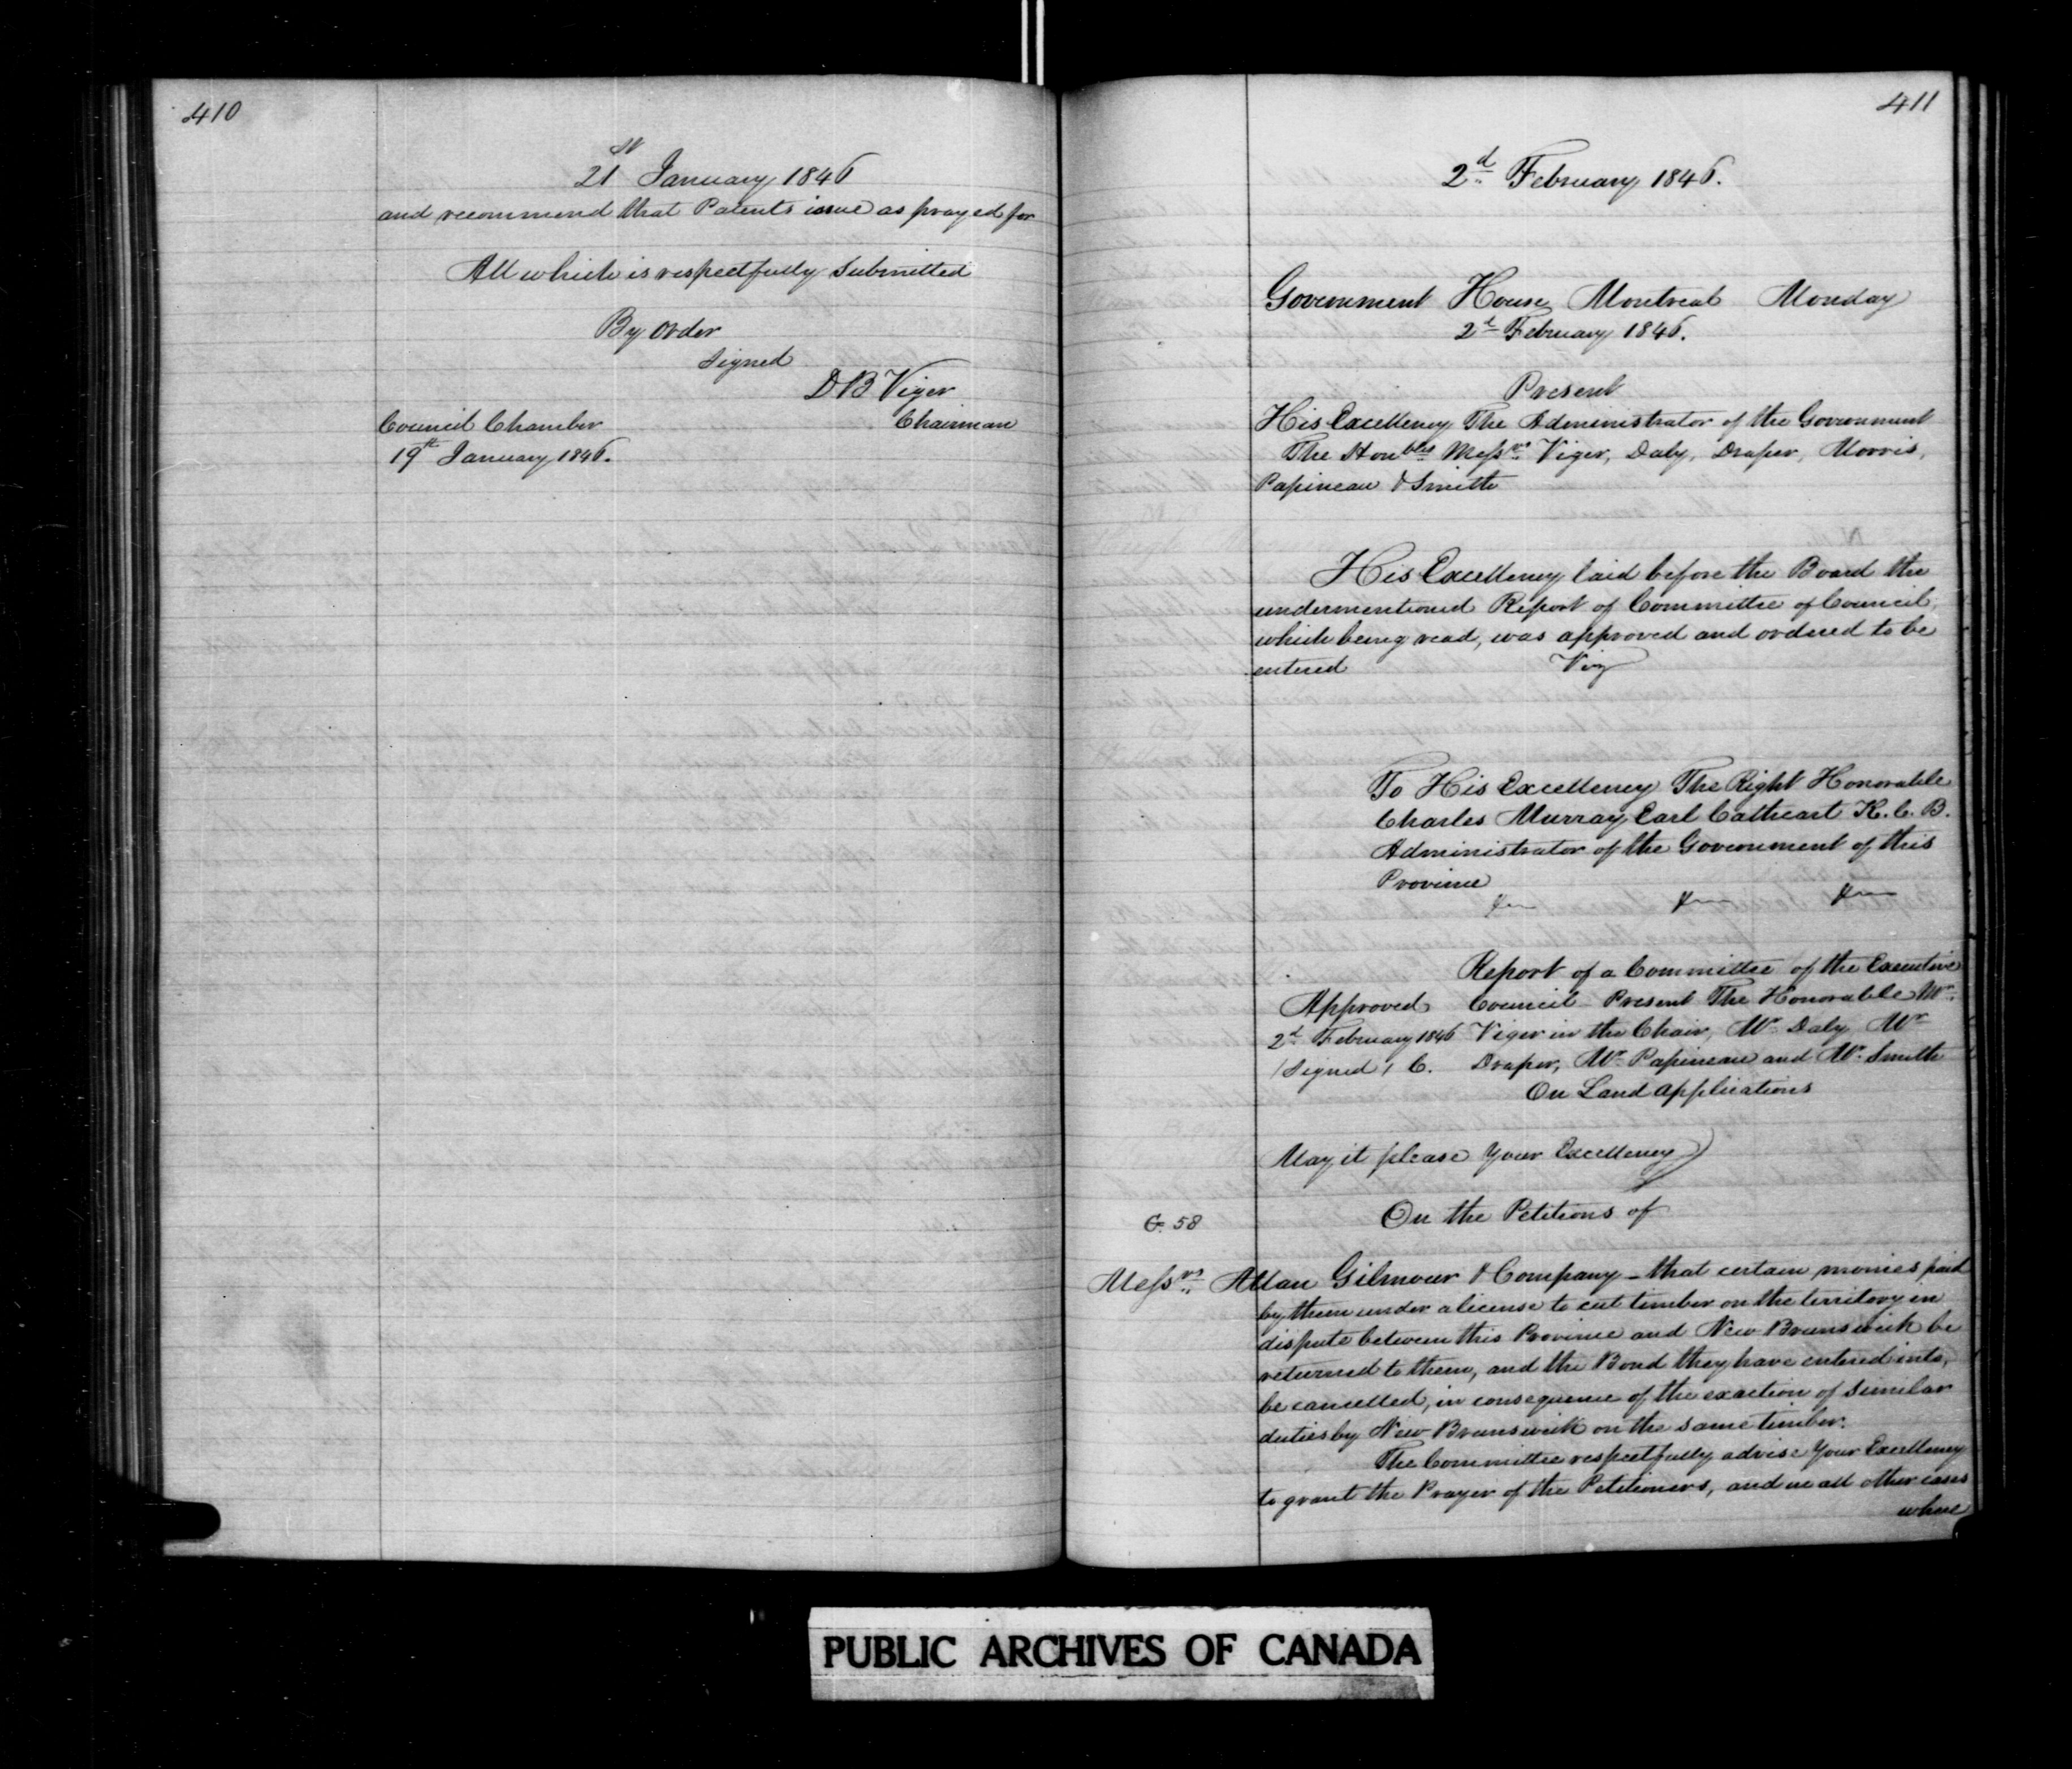 410
21st January 1846
and recommend that Patents issue as prayed for
All which is respectfully submitted
By order
signed
D B Viger
Chairman
Council Chamber
19th January 1846.
411
2d February 1846.
Government House Montreal Monday
2d February 1846.
Present
His Excellency The Administrator of the Government
The Honbles Messrs Viger, Daly, Draper, Morris,
Papineau & Smith
His Excellency laid before the Board the
undermentioned Report of Committee of Council,
which being read, was approved and ordered to be
entered Viz
To His Excellency The Right Honorable
Charles Murray Earl Cathcart K.C.B.
Administrator of the Government of this
Province
&c &c &c
Report of a Committee of the Executive
Approved Council Present The Honorable Mr.
2d February 1846 Viger in the Chair, Mr Daly Mr
/signed/ C. Draper, Mr Papineau and Mr Smith
On Land Applications
May it please Your Excellency
On the Petitions of
G. 58
Messrs Allan Gilmour & Company - that certain monies paid
by them under a license to cut timber on the territory in
dispute between this Province and New Brunswick be
returned to them, and the Bond they have entered into,
be cancelled, in consequence of the exaction of similar
duties by New Brunswick on the same timber.
The Committee respectfully advise Your Excellency
to grant the Prayer of the Petitioners, and in all other cases
where
PUBLIC ARCHIVES OF CANADA